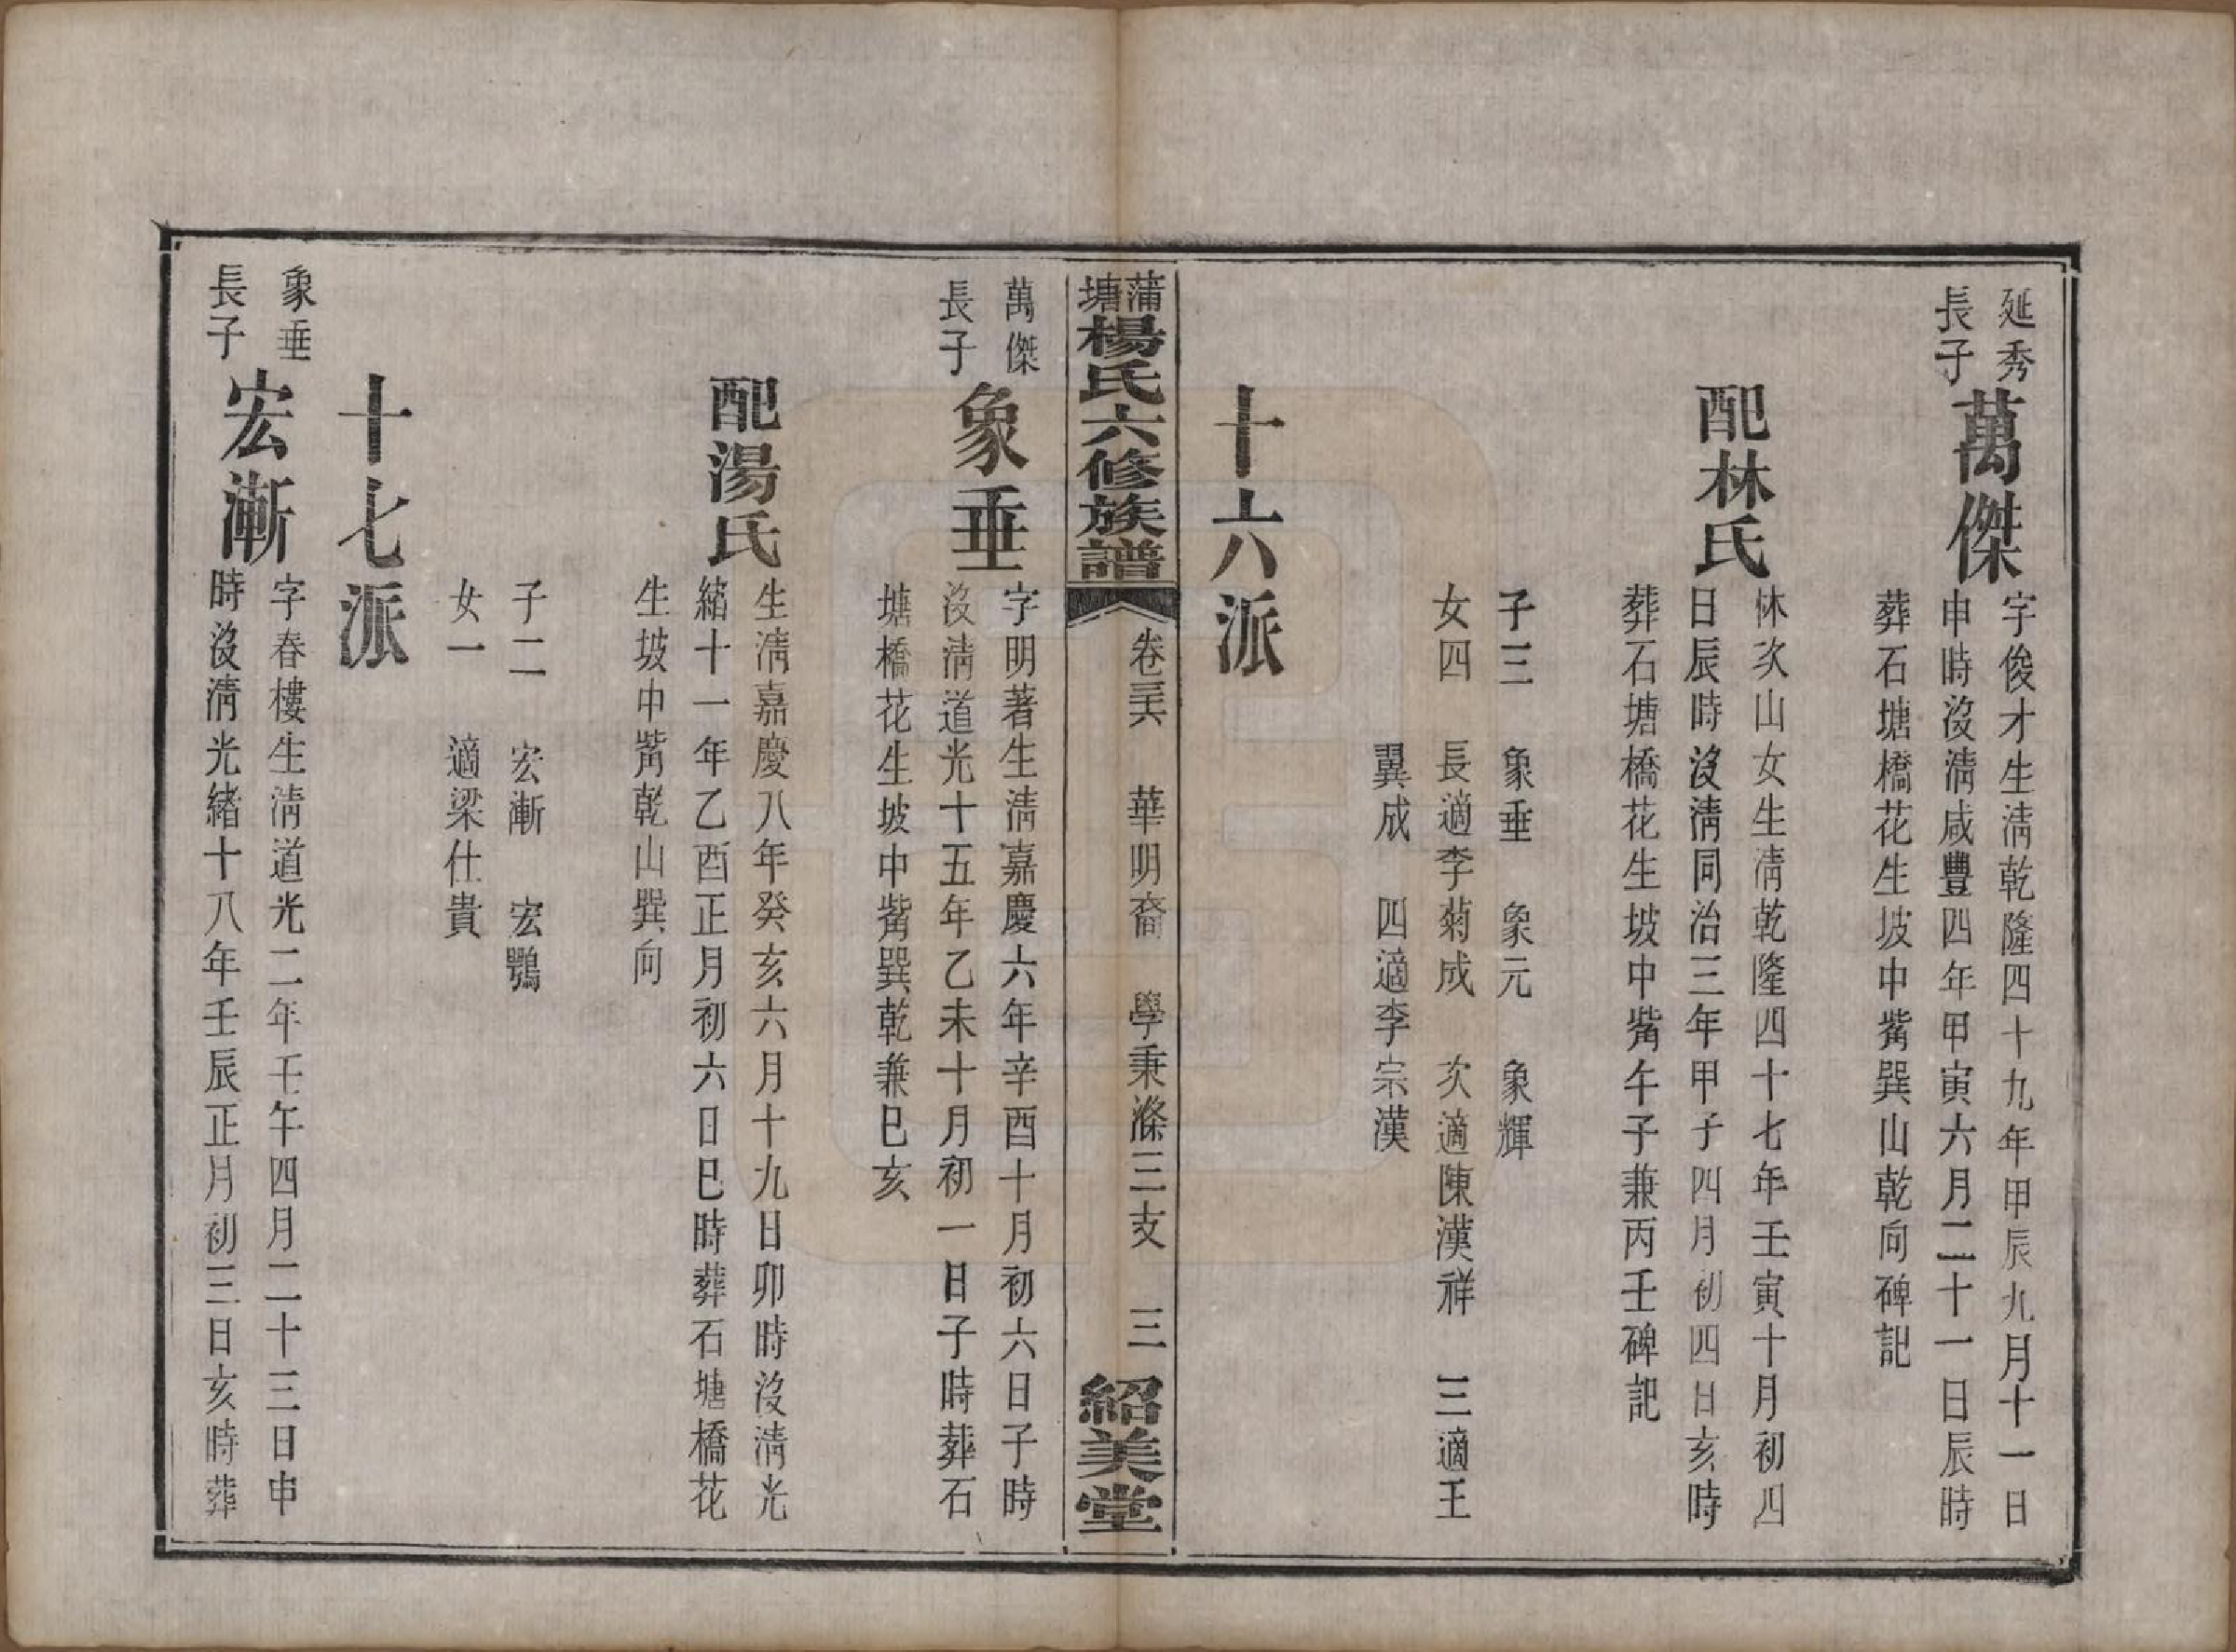 延秀
長子
萬傑
字俊才生淸乾隆四十九年甲辰九月十一日
申時沒淸咸豐四年甲寅六月二十一日辰時
葬石塘橋花生坡中觜巽山乾向碑記
配林氏
林次山女生淸乾隆四十七年壬寅十月初四
日辰時沒淸同治三年甲子四月初四日亥時
葬石塘橋花生坡中觜午子兼丙壬碑記
子三　象垂　象元　象輝
女四　長適李菊成　次適陳漢祥　三適王
翼成　四適李宗漢
十六派
蒲塘楊氏六修族譜
卷三六　華明裔　學秉滌三支　三
紹美堂
萬傑
長子
象垂
字明著生淸嘉慶六年辛酉十月初六日子時
沒淸道光十五年乙未十月初一日子時葬石
塘橋花生坡中觜巽乾兼巳亥
配湯氏
生淸嘉慶八年癸亥六月十九日卯時沒淸光
緒十一年乙酉正月初六日巳時葬石塘橋花
生坡中觜乾山巽向
子二　宏漸　宏鶚
女一　適梁仕貴
十七派
象垂
長子
宏漸
字春樓生淸道光二年壬午四月二十三日申
時沒淸光緒十八年壬辰正月初三日亥時葬